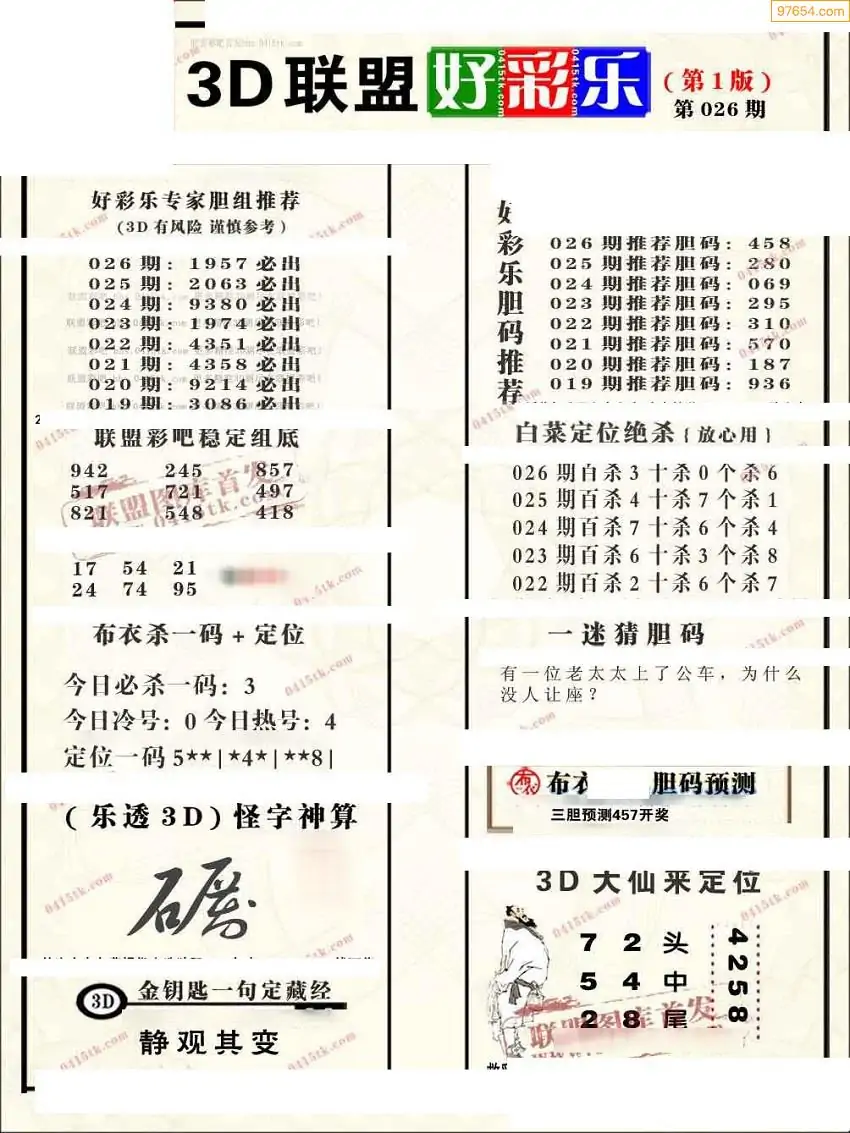 97654.com
3D联盟好彩乐
(第1版)
第026期
好彩乐专家胆组推荐
(3D有风险 谨慎参考)
026期: 1957必出
025期: 2063必出
024期: 9380必出
023期: 1974必出
022期: 4351必出
021期: 4358必出
020期: 9214必出
019期: 3086必出
联盟彩吧稳定组底
942 245 857
517 721 497
821 548 418
17 54 21
24 74 95
布衣杀一码+定位
今日必杀一码: 3
今日冷号: 0 今日热号: 4
定位一码 5**|*4*|**8|
(乐透3D)怪字神算
3D 金钥匙一句定藏经
静观其变
好彩乐胆码推荐
026期推荐胆码: 458
025期推荐胆码: 280
024期推荐胆码: 069
023期推荐胆码: 295
022期推荐胆码: 310
021期推荐胆码: 570
020期推荐胆码: 187
019期推荐胆码: 936
白菜定位绝杀{放心用}
026期百杀3十杀0个杀6
025期百杀4十杀7个杀1
024期百杀7十杀6个杀4
023期百杀6十杀3个杀8
022期百杀2十杀6个杀7
一迷猜胆码
有一位老太太上了公车，为什么
没人让座？
布衣 胆码预测
三胆预测457开奖
3D大仙来定位
7 2 头
5 4 中
2 8 尾
4258
联盟图库首发
0415tk.com